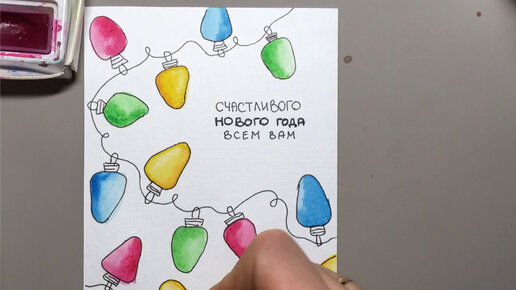 СЧАСТЛИВОГО
НОВОГО ГОДА
ВСЕМ ВАМ